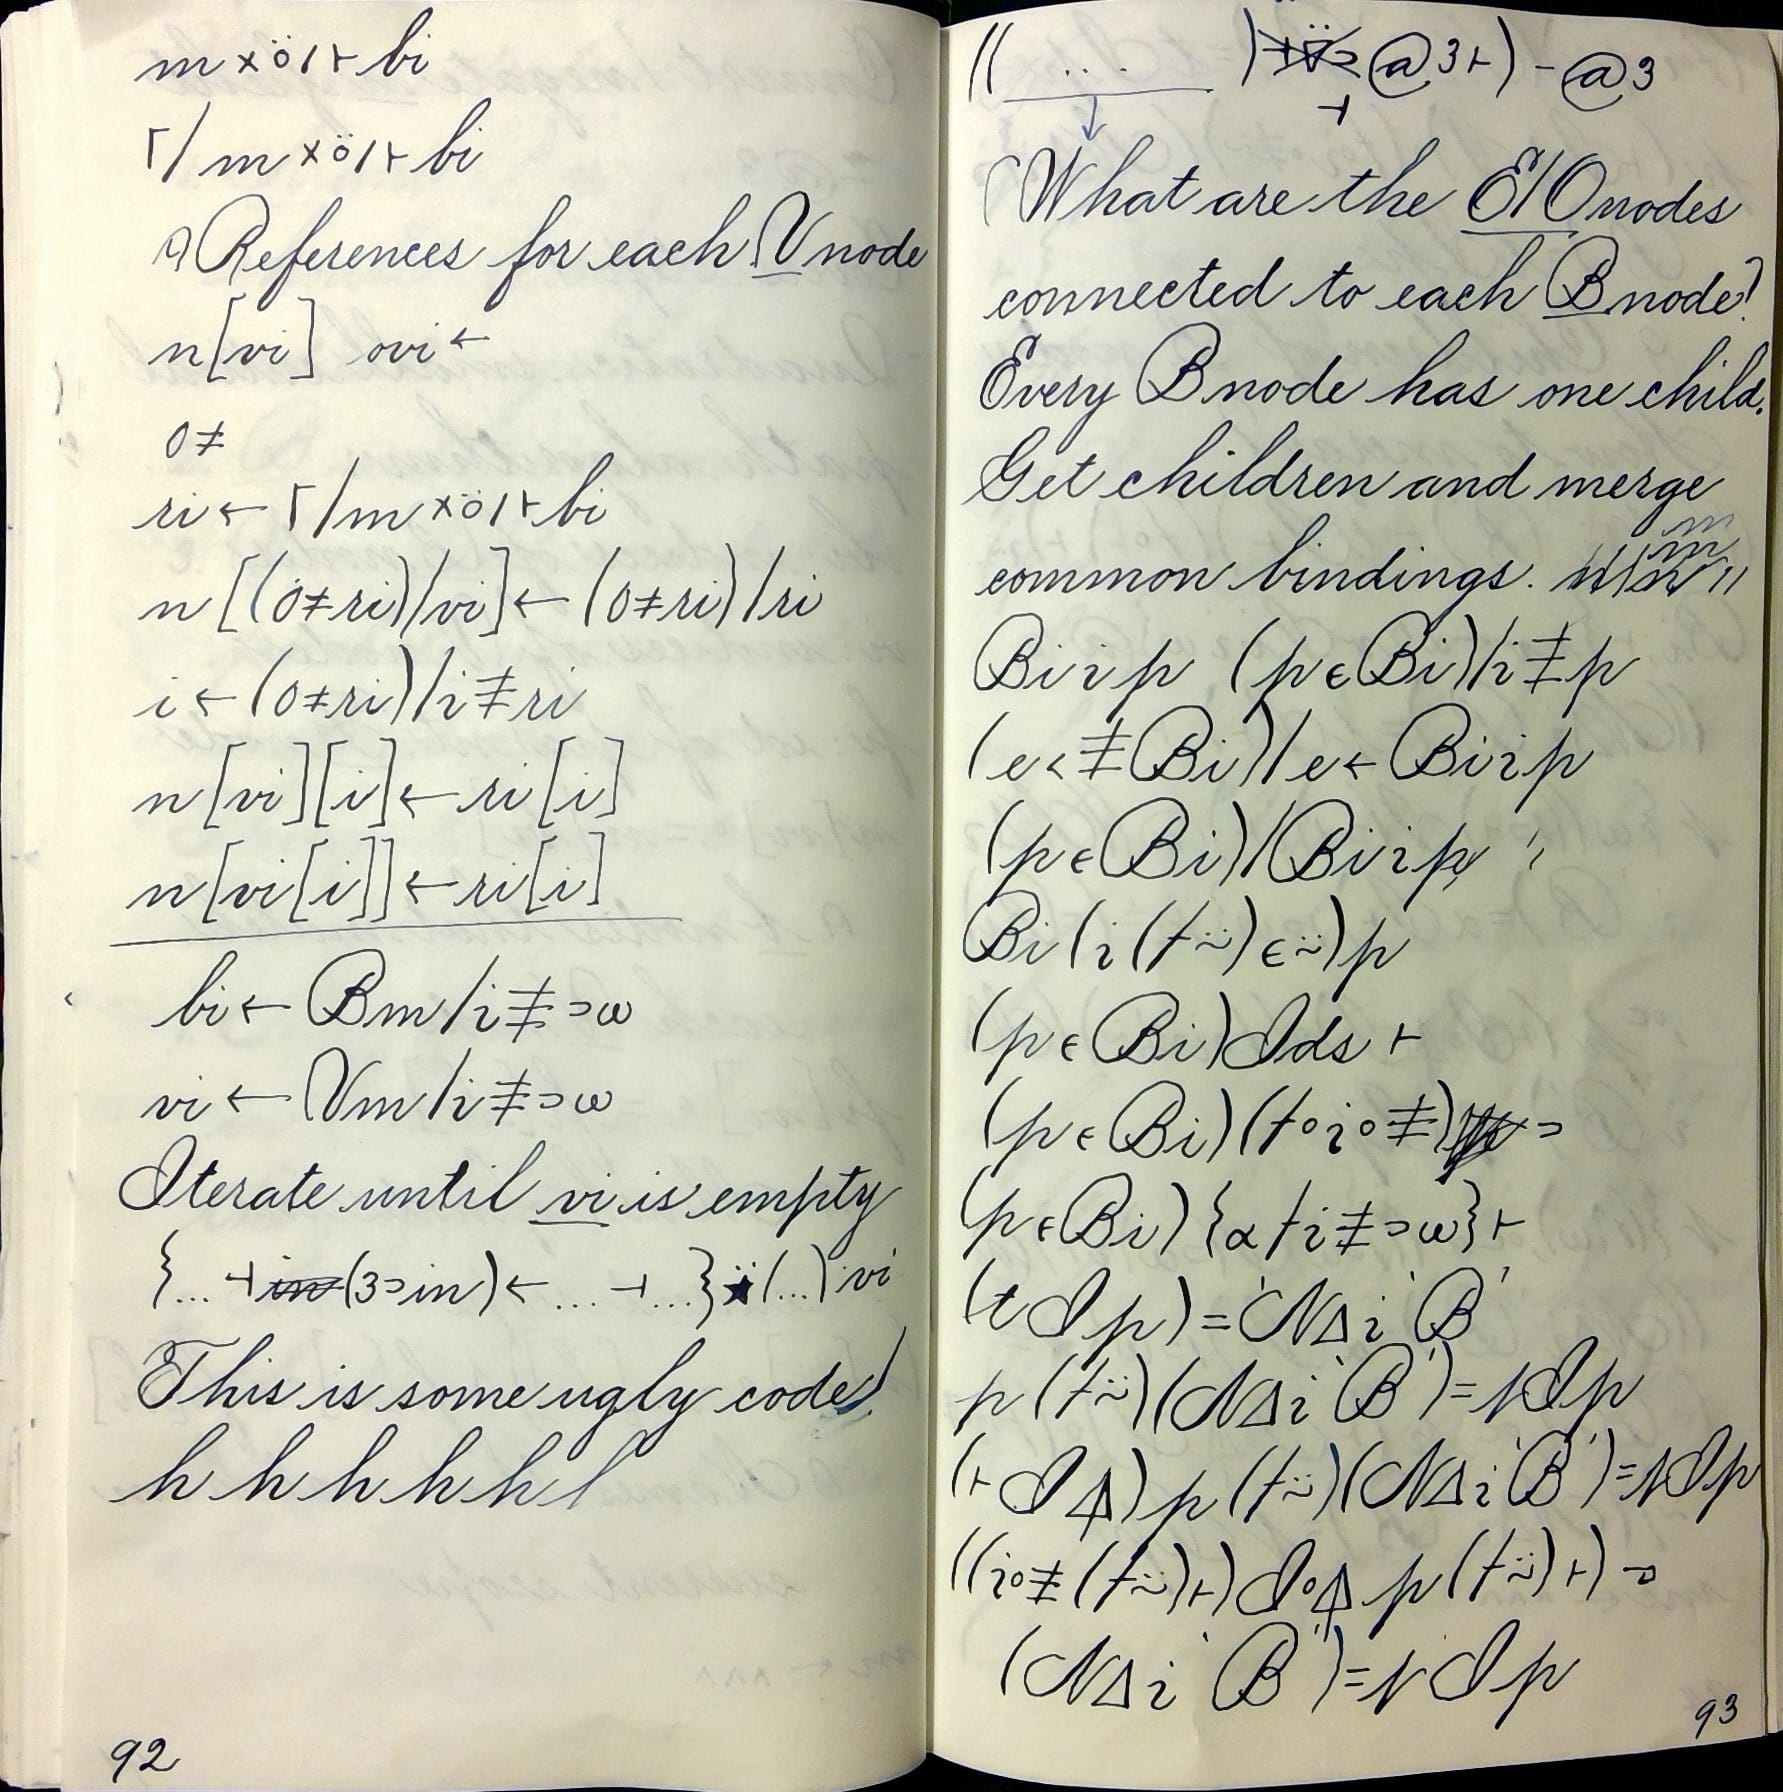 m×⍥⍳⊢bi
⌈/m×⍥⍳⊢bi
⍝ References for each V node
n[vi] ovi←
0≠
ri←⌈/m×⍥⍳⊢bi
n[(0≠ri)/vi]←(0≠ri)/ri
i←(0≠ri)/⍳≢ri
n[vi][i]←ri[i]
n[vi[i]]←ri[i]
bi←Bm/⍳≢⊃⍵
vi←Vm/⍳≢⊃⍵
Iterate until vi is empty
{...⊣(3⊃in)←...⊣...}⍣(...)vi
This is some ugly code!
h h h h h l
92
(( ... ) ⊣@3⊢)-@3
What are the E/O nodes
connected to each B node?
Every B node has one child.
Get children and merge
common bindings.
Bi⍳p (p∊Bi)/⍳≢p
(e<≢Bi)/e←Bi⍳p
(p∊Bi)/Bi⍳p
Bi(⍳(/⍨)∊⍨)p
(p∊Bi)Ids⊢
(p∊Bi)(/∘⍳∘≢)⊃
(p∊Bi){⍺/⍳≢⊃⍵}⊢
(t⌷p)=N∆⍳'B'
p(/⍨)(N∆⍳'B')=t⌷p
(⊢⌷⍋)p(/⍨)(N∆⍳'B')=t⌷p
((⍳∘≢(/⍨)⊢)⌷∘⍋p(/⍨)⊢)⊃
(N∆⍳'B')=t⌷p
93